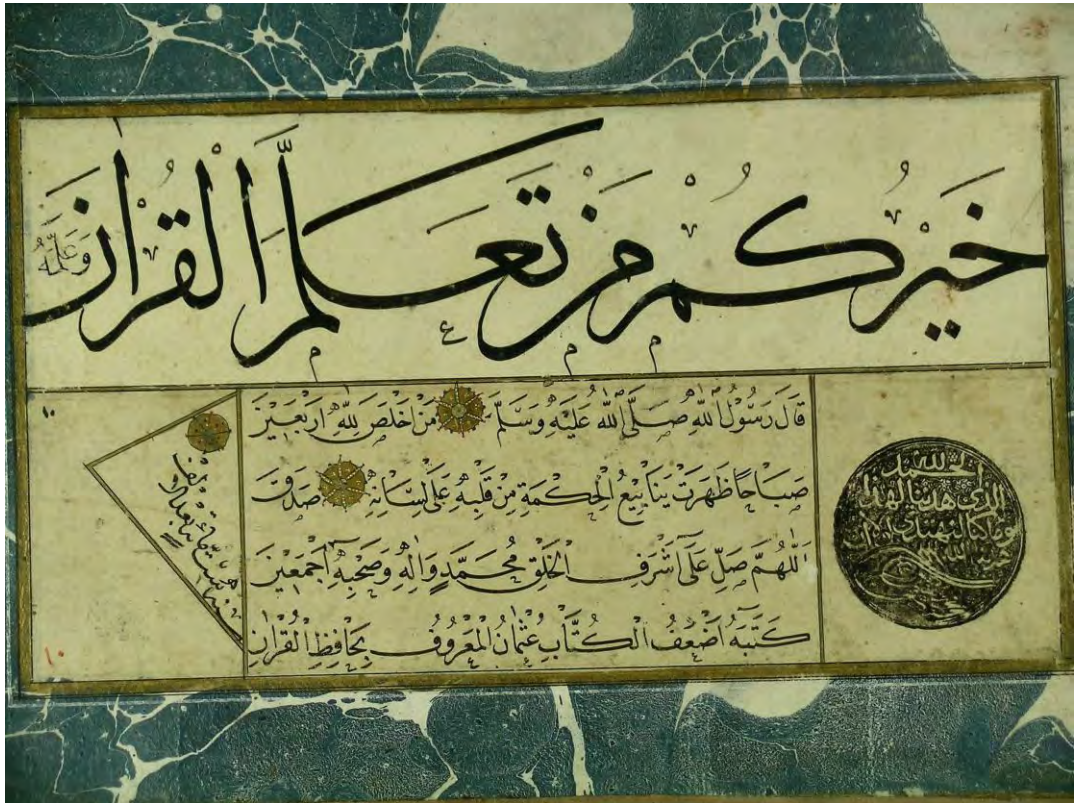 خَيْرُكُمْ مَنْ تَعَلَّمَ الْقُرْاٰنَ وَعَلَّمَهُ
قَالَ رَسُولُ اللهِ صَلَّى اللهُ عَلَيْهِ وَسَلَّمَ مَنْ اَخْلَصَ لِلّٰهِ اَرْبَعِينَ
صَبَاحًا ظَهَرَتْ يَنَابِيعُ الْحِكْمَةِ مِنْ قَلْبِهِ عَلَى لِسَانِهِ صَدَقَ
اَللّٰهُمَّ صَلِّ عَلَى اَشْرَفِ الْخَلْقِ مُحَمَّدٍ وَاٰلِهِ وَصَحْبِهِ اَجْمَعِينَ
كَتَبَهُ اَضْعَفُ الْكُتَّابِ عُثْمَانُ الْمَعْرُوفُ بِحَافِظِ الْقُرْاٰنِ
الحمد لله
الذي هدينا لهذا
وما كنا لنهتدي لولا ان
الله
١٠
مائة بعد الالف
١٠